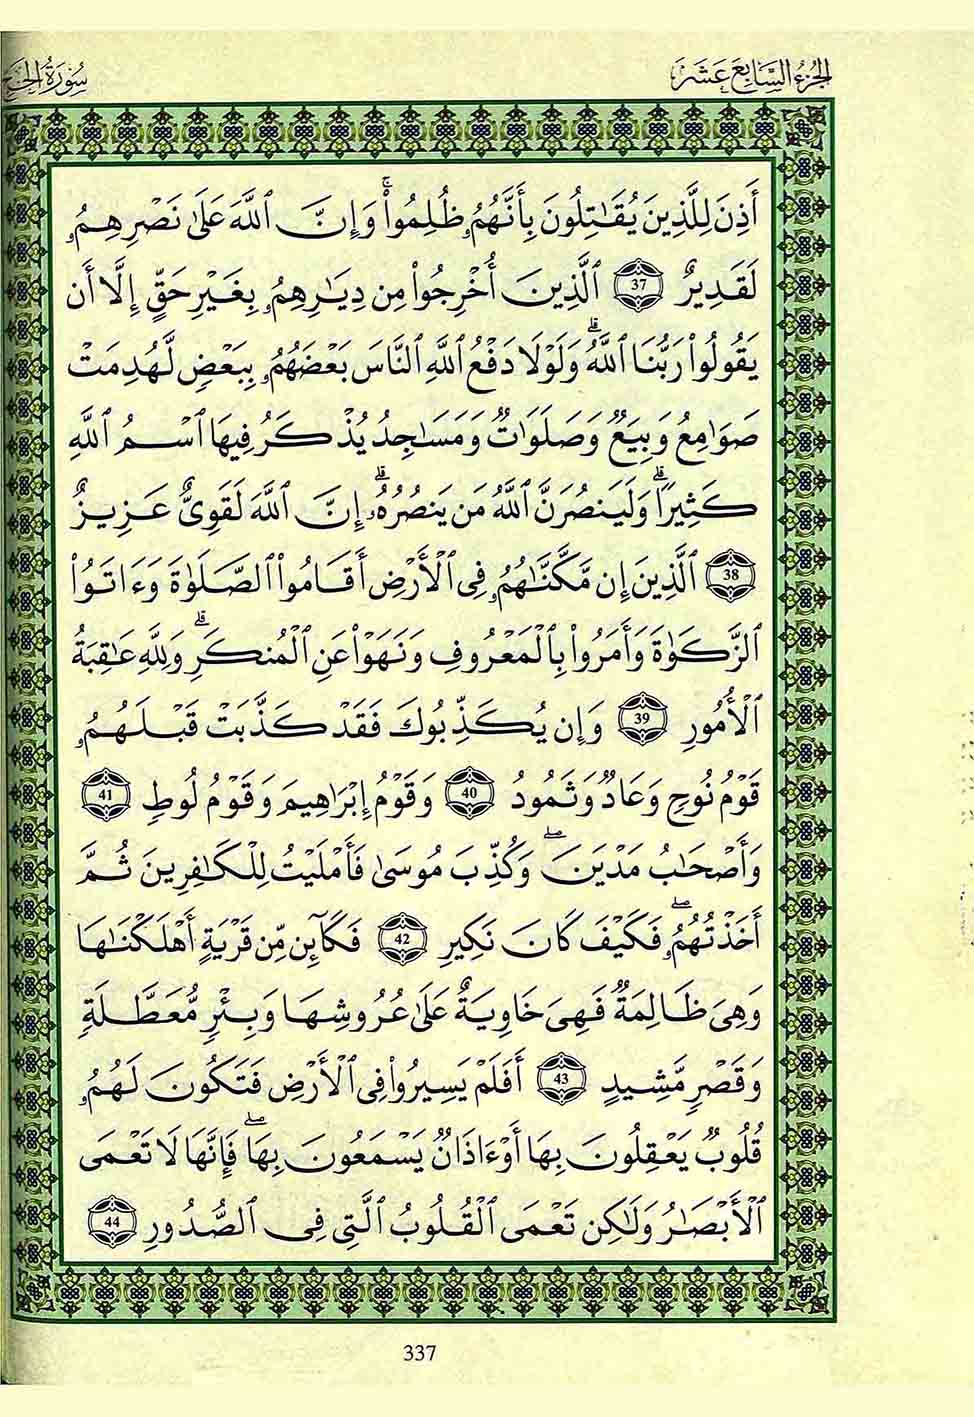 الجُزْءُ السَّابِعَ عَشَرَ
سُورَةُ الحَجِّ
أَذِنَ لِلَّذِينَ يُقَٰتِلُونَ بِأَنَّهُمُۥ ظُلِمُواْۚ وَإِنَّ ٱللَّهَ عَلَىٰ نَصْرِهِمُۥ
لَقَدِيرٌ 37 ٱلَّذِينَ أُخْرِجُواْ مِن دِيَٰرِهِمُۥ بِغَيْرِ حَقٍّ إِلَّا أَن
يَقُولُواْ رَبُّنَا ٱللَّهُۗ وَلَوْلَا دَفْعُ ٱللَّهِ ٱلنَّاسَ بَعْضَهُمُۥ بِبَعْضٍ لَّهُدِمَتْ
صَوَٰمِعُ وَبِيَعٌ وَصَلَوَٰتٌ وَمَسَٰجِدُ يُذْكَرُ فِيهَا ٱسْمُ ٱللَّهِ
كَثِيرًاۗ وَلَيَنصُرَنَّ ٱللَّهُ مَن يَنصُرُهُۥۗ إِنَّ ٱللَّهَ لَقَوِيٌّ عَزِيزٌ
38 ٱلَّذِينَ إِن مَّكَّنَّٰهُمُۥ فِي ٱلْأَرْضِ أَقَامُواْ ٱلصَّلَوٰةَ وَءَاتَوُاْ
ٱلزَّكَوٰةَ وَأَمَرُواْ بِٱلْمَعْرُوفِ وَنَهَوْاْ عَنِ ٱلْمُنكَرِۗ وَلِلَّهِ عَٰقِبَةُ
ٱلْأُمُورِ 39 وَإِن يُكَذِّبُوكَ فَقَدْ كَذَّبَتْ قَبْلَهُمُۥ
قَوْمُ نُوحٍ وَعَادٌ وَثَمُودُ 40 وَقَوْمُ إِبْرَاهِيمَ وَقَوْمُ لُوطٍ 41
وَأَصْحَٰبُ مَدْيَنَۖ وَكُذِّبَ مُوسَىٰ فَأَمْلَيْتُ لِلْكَٰفِرِينَ ثُمَّ
أَخَذْتُهُمُۥۖ فَكَيْفَ كَانَ نَكِيرِ 42 فَكَآئِن مِّن قَرْيَةٍ أَهْلَكْنَٰهَا
وَهِيَ ظَالِمَةٌ فَهِيَ خَاوِيَةٌ عَلَىٰ عُرُوشِهَا وَبِئْرٍ مُّعَطَّلَةٍ
وَقَصْرٍ مَّشِيدٍ 43 أَفَلَمْ يَسِيرُواْ فِي ٱلْأَرْضِ فَتَكُونَ لَهُمُۥ
قُلُوبٌ يَعْقِلُونَ بِهَا أَوْ ءَاذَانٌ يَسْمَعُونَ بِهَاۖ فَإِنَّهَا لَا تَعْمَى
ٱلْأَبْصَٰرُ وَلَٰكِن تَعْمَى ٱلْقُلُوبُ ٱلَّتِي فِي ٱلصُّدُورِ 44
337